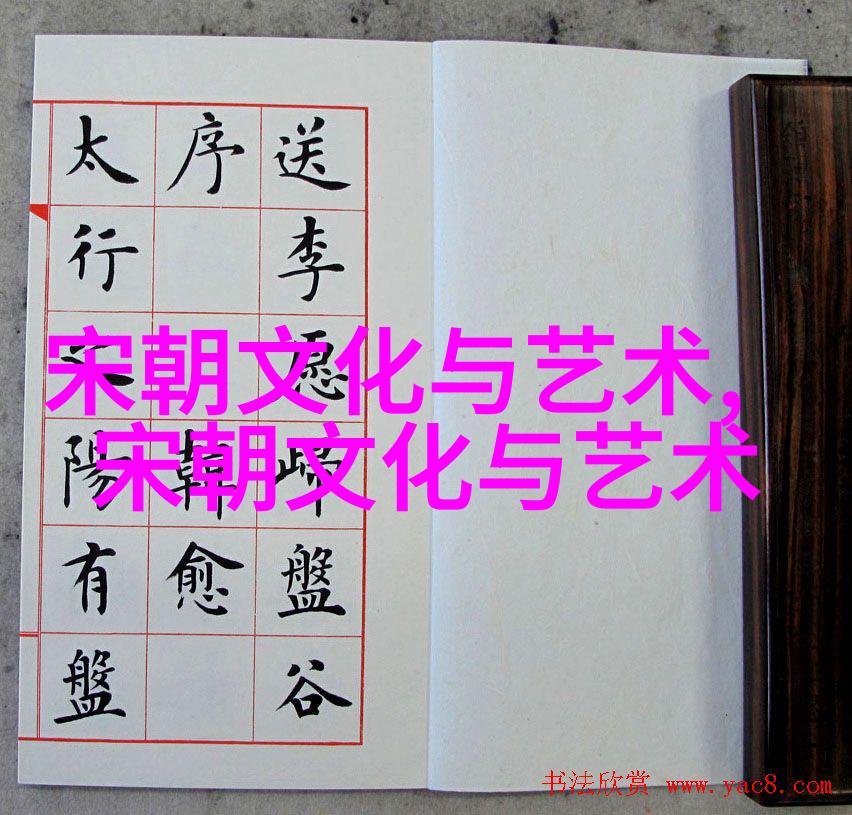 送李愿歸盤谷
序韓愈
太行之陽有盤
宋朝文化与艺术,
宋朝文化与艺术
书法欣赏 www.yac8.com